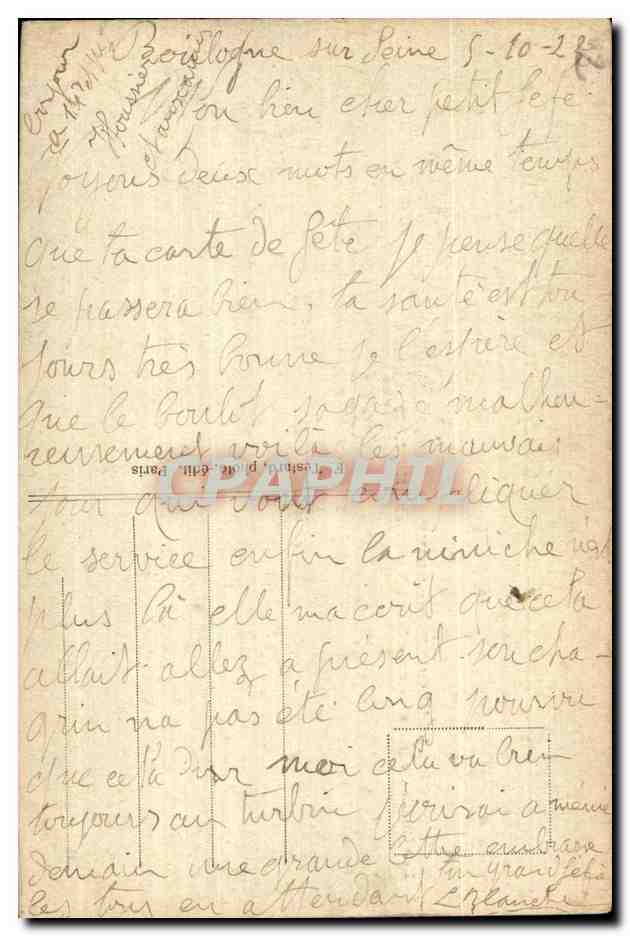 Boulogne sur Seine 5-10-22
bonjour
a
Mon bien cher petit
deux mots en même temps
que ta carte de fête je pense quelle
se passera bien, ta santé est tou-
jours très bonne je l'espère et
que le boulot malheu-
reusement voilà les mauvais
F. Testard, photo.-édit. Paris
CPAPHIL
jour qui vont compliquer
le service enfin la miniche nest
plus là elle ma écrit que cela
allait allez a présent son cha-
grin na pas été long pourvu
que cela dur moi cela va bien
toujours au turbin j'écrirai a même
demain une grande lettre embrasse
les tous en attendant
Ton grand
L Blanche